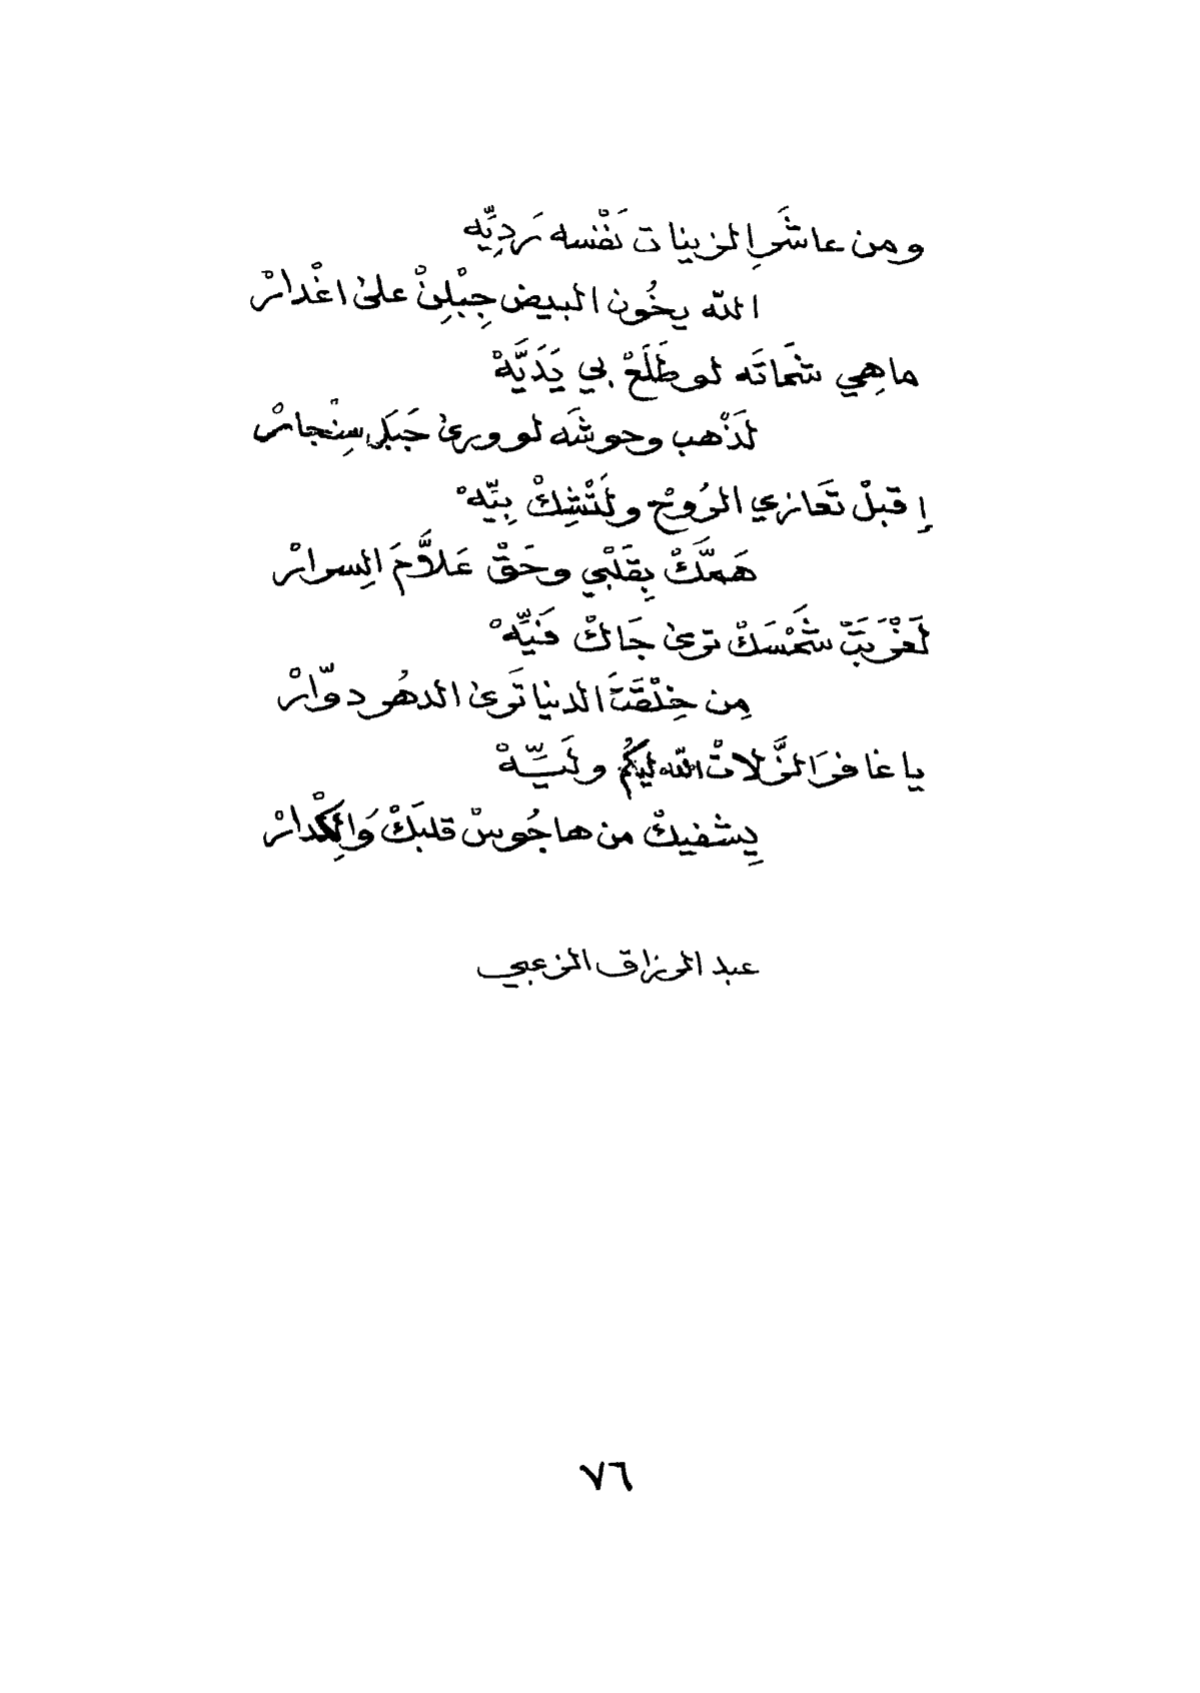 ومن عاشَرِ الزينات نَفْسه رَدِيِّه
الله يخُون البيض جِبْلِنْ على اغْدارْ
ما هِي شَماتَه لو طَلَعْ بي يَدَيَّهْ
لَذْهب وحوشَه لو ورى جَبَل سِنْجارْ
إقبلْ تَعازي الرُوحْ ولَتْشِكْ بِيِّهْ
هَمَّكْ بِقَلْبي وحَقْ عَلاَّمَ الِسرارْ
لَغْرَبَتْ شَمْسَكْ ترى جَاكْ فَيِّهْ
مِن خِلْقَتَ الدنيا تَرى الدهُر دوّارْ
يا غافرَ الزَّلاتْ الله ليكُم ولَيِّهْ
يِشفيكْ من هاجُوسْ قلبَكْ وَالِكْدارْ
عبد الرزاق الزعبي
٧٦